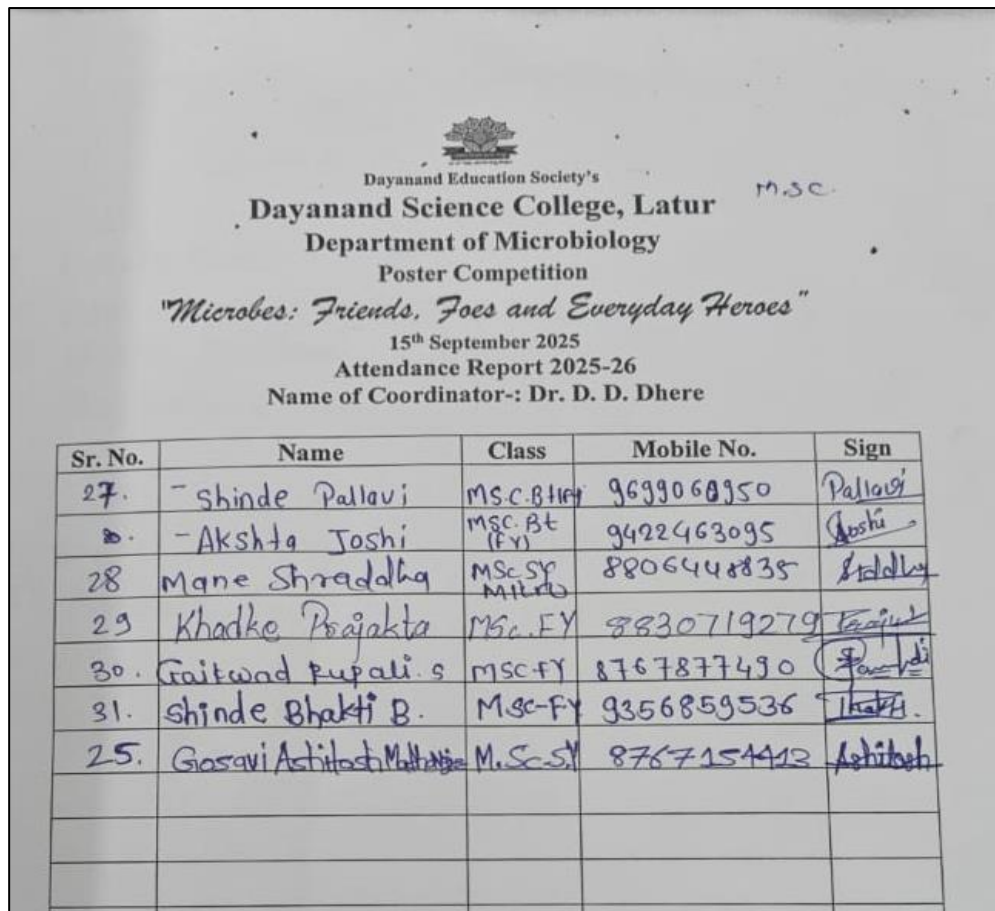 Dayanand Education Society's
M.SC.
Dayanand Science College, Latur
Department of Microbiology
Poster Competition
"Microbes: Friends, Foes and Everyday Heroes"
15th September 2025
Attendance Report 2025-26
Name of Coordinator-: Dr. D. D. Dhere
Sr. No. Name Class Mobile No. Sign
27. - Shinde Pallavi 9699060950 Pallavi
- Akshta Joshi MSC. Bt (FY) 9422463095 Joshi
28 Mane Shraddha MSc SY 8806448835
29 Khadke Prajakta MSc. FY 8830719279
30. Gaikwad Rupali. S MSC-FY 8767877490
31. Shinde Bhakti B. M.SC-FY 9356859536
25. Gosavi Ashitosh M.Sc-S.Y 8767154413 Ashitosh